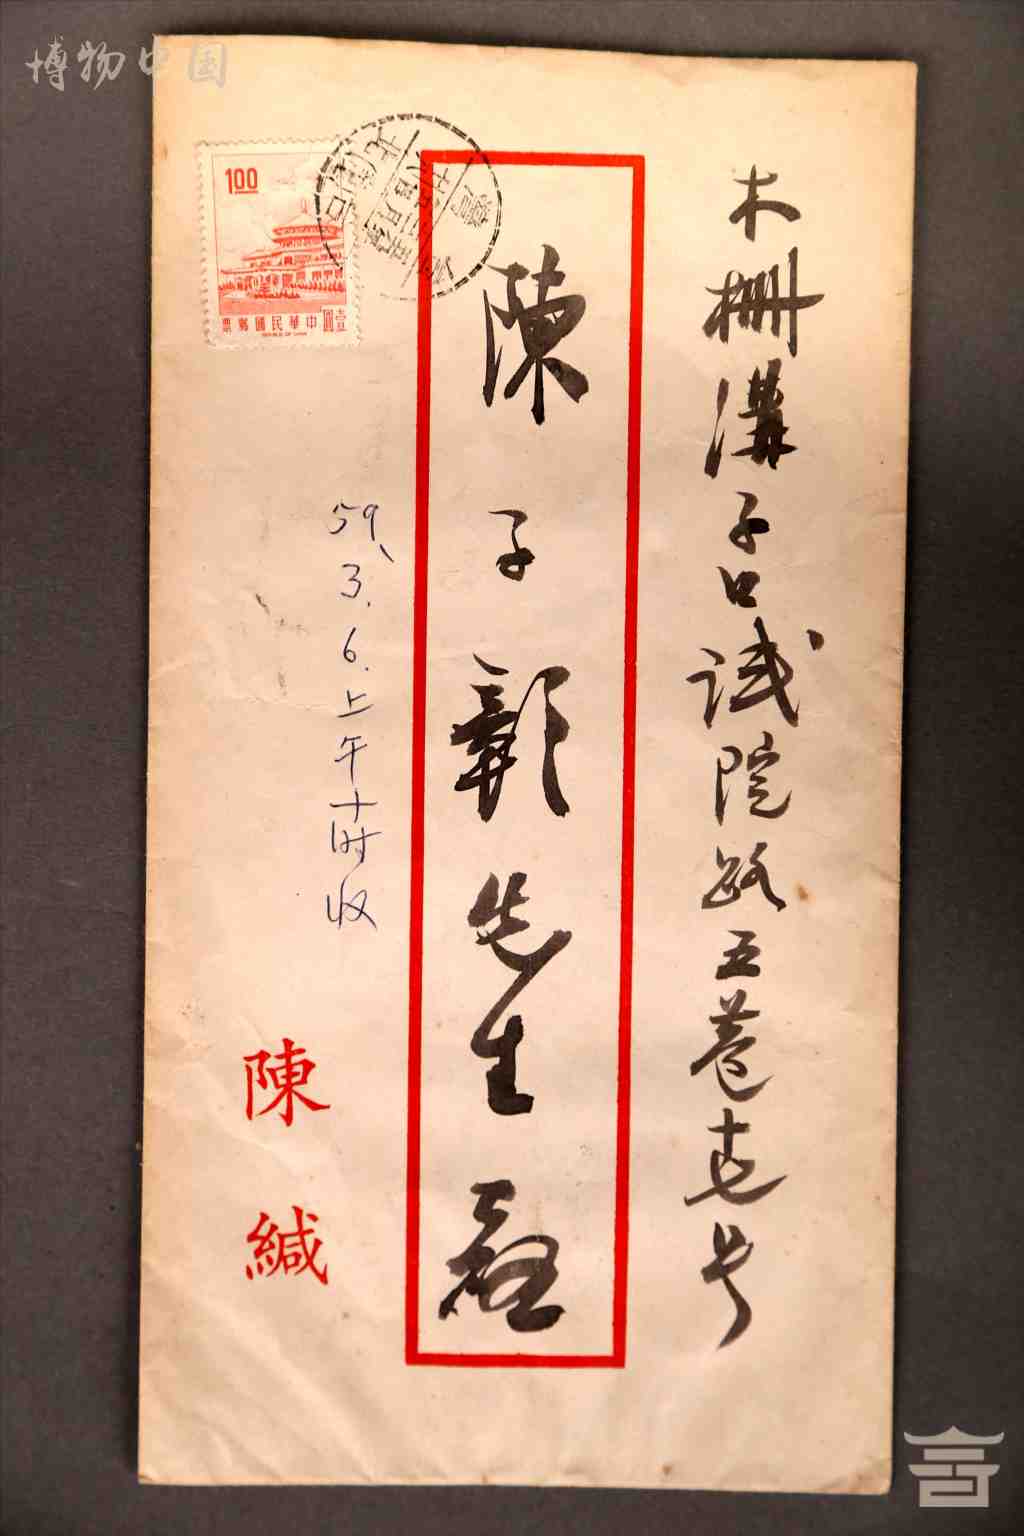 博物中国
木柵溝子口試院路五巷十七号
陳子先生啟
1.00
壹圓中華民國郵票
REPUBLIC OF CHINA
59、3.6.上午十时收
陳緘